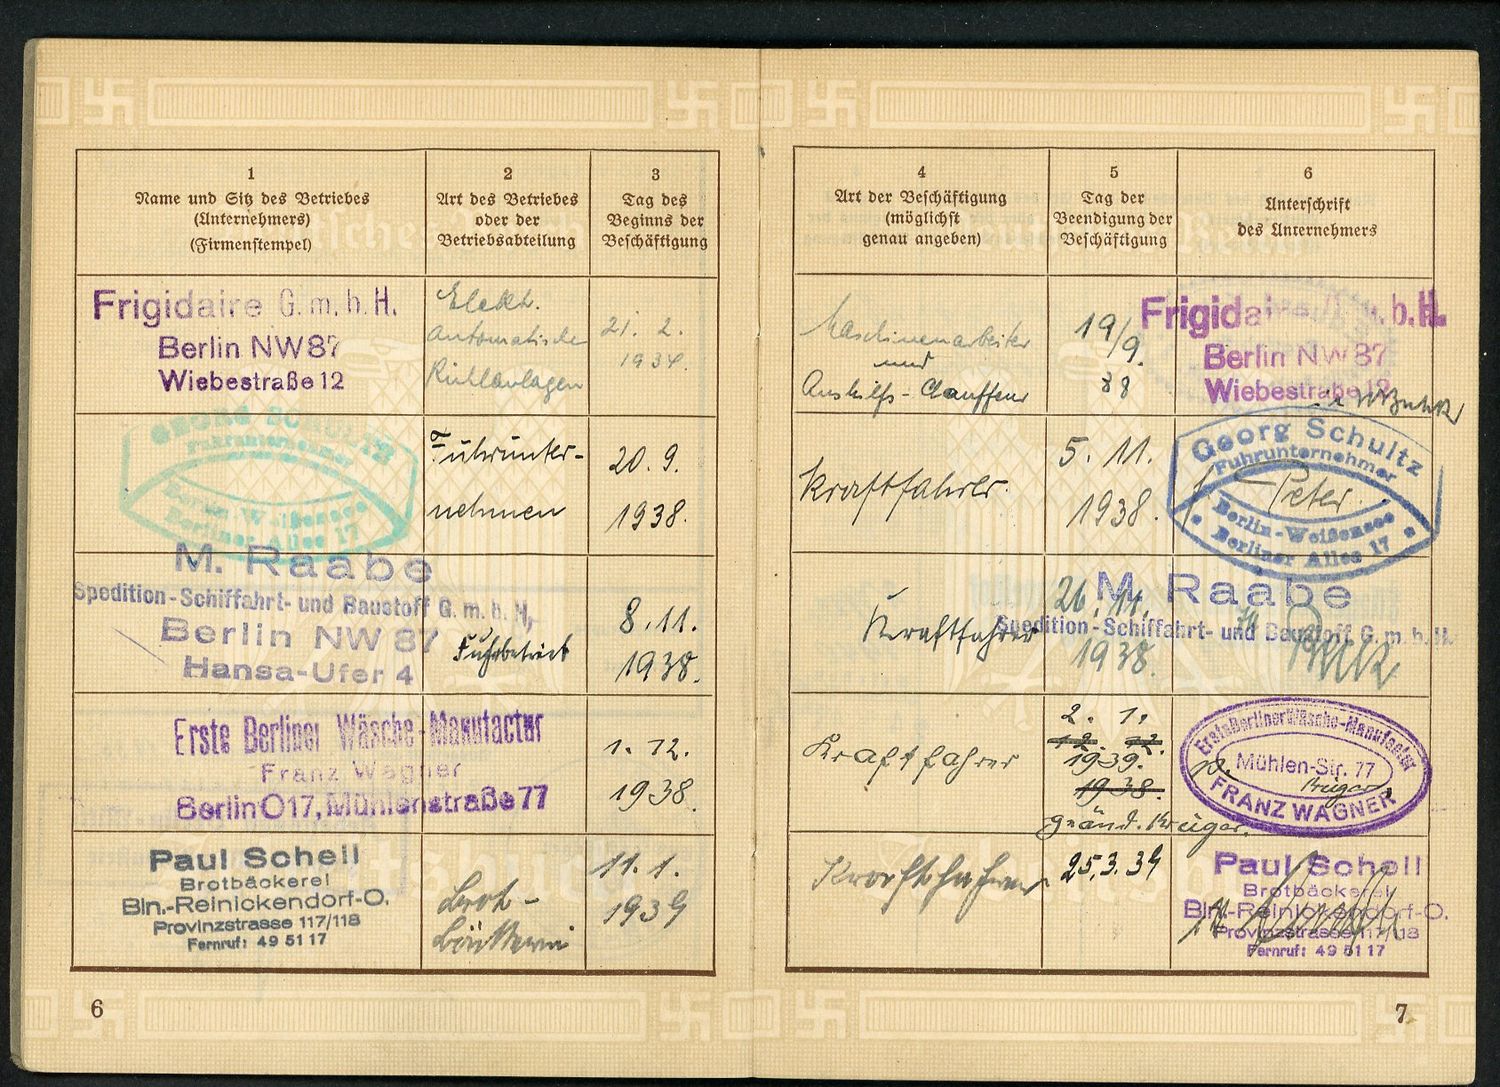 1
Name und Sitz des Betriebes
(Unternehmers)
(Firmenstempel)
2
Art des Betriebes
oder der
Betriebsabteilung
3
Tag des
Beginns der
Beschäftigung
Frigidaire G.m.b.H.
Berlin NW87
Wiebestraße 12
Elektr.
Automatische
Kühlanlagen
21. 2.
1934.
GEORG SCHULTZ
Fuhrunternehmer
Berlin-Weißensee
Berliner Allee 17
Fuhrunter-
nehmen
20. 9.
1938.
M. Raabe
Spedition-Schiffahrt- und Baustoff G.m.b.H.
Berlin NW 87
Hansa-Ufer 4
Fuhrbetrieb
8. 11.
1938.
Erste Berliner Wäsche-Manufactur
Franz Wagner
Berlin O17, Mühlenstraße 77
1. 12.
1938.
Paul Schell
Brotbäckerei
Bln.-Reinickendorf-O.
Provinzstrasse 117/118
Fernruf: 49 51 17
Brot-
Bäckerei
11. 1.
1939
6
4
Art der Beschäftigung
(möglichst
genau angeben)
5
Tag der
Beendigung der
Beschäftigung
6
Unterschrift
des Unternehmers
Maschinenarbeiter
und
Aushilfs-Chauffeur
19/9.
38
Frigidaire G.m.b.H.
Berlin NW 87
Wiebestraße 12
Kraftfahrer.
5. 11.
1938.
Georg Schultz
Fuhrunternehmer
Peter.
Berlin-Weißensee
Berliner Allee 17
Kraftfahrer
26. 11.
1938.
M. Raabe
Spedition-Schiffahrt- und Baustoff G.m.b.H.
Kraftfahrer
2. 1.
12. 12.
1939.
1938.
geänd. Krüger.
Erste Berliner Wäsche-Manufactur
Mühlen-Str. 77
Krüger
FRANZ WAGNER
Kraftfahrer
25.3.39
Paul Schell
Brotbäckerei
Bln.-Reinickendorf-O.
Provinzstrasse 117/118
Fernruf: 49 51 17
7